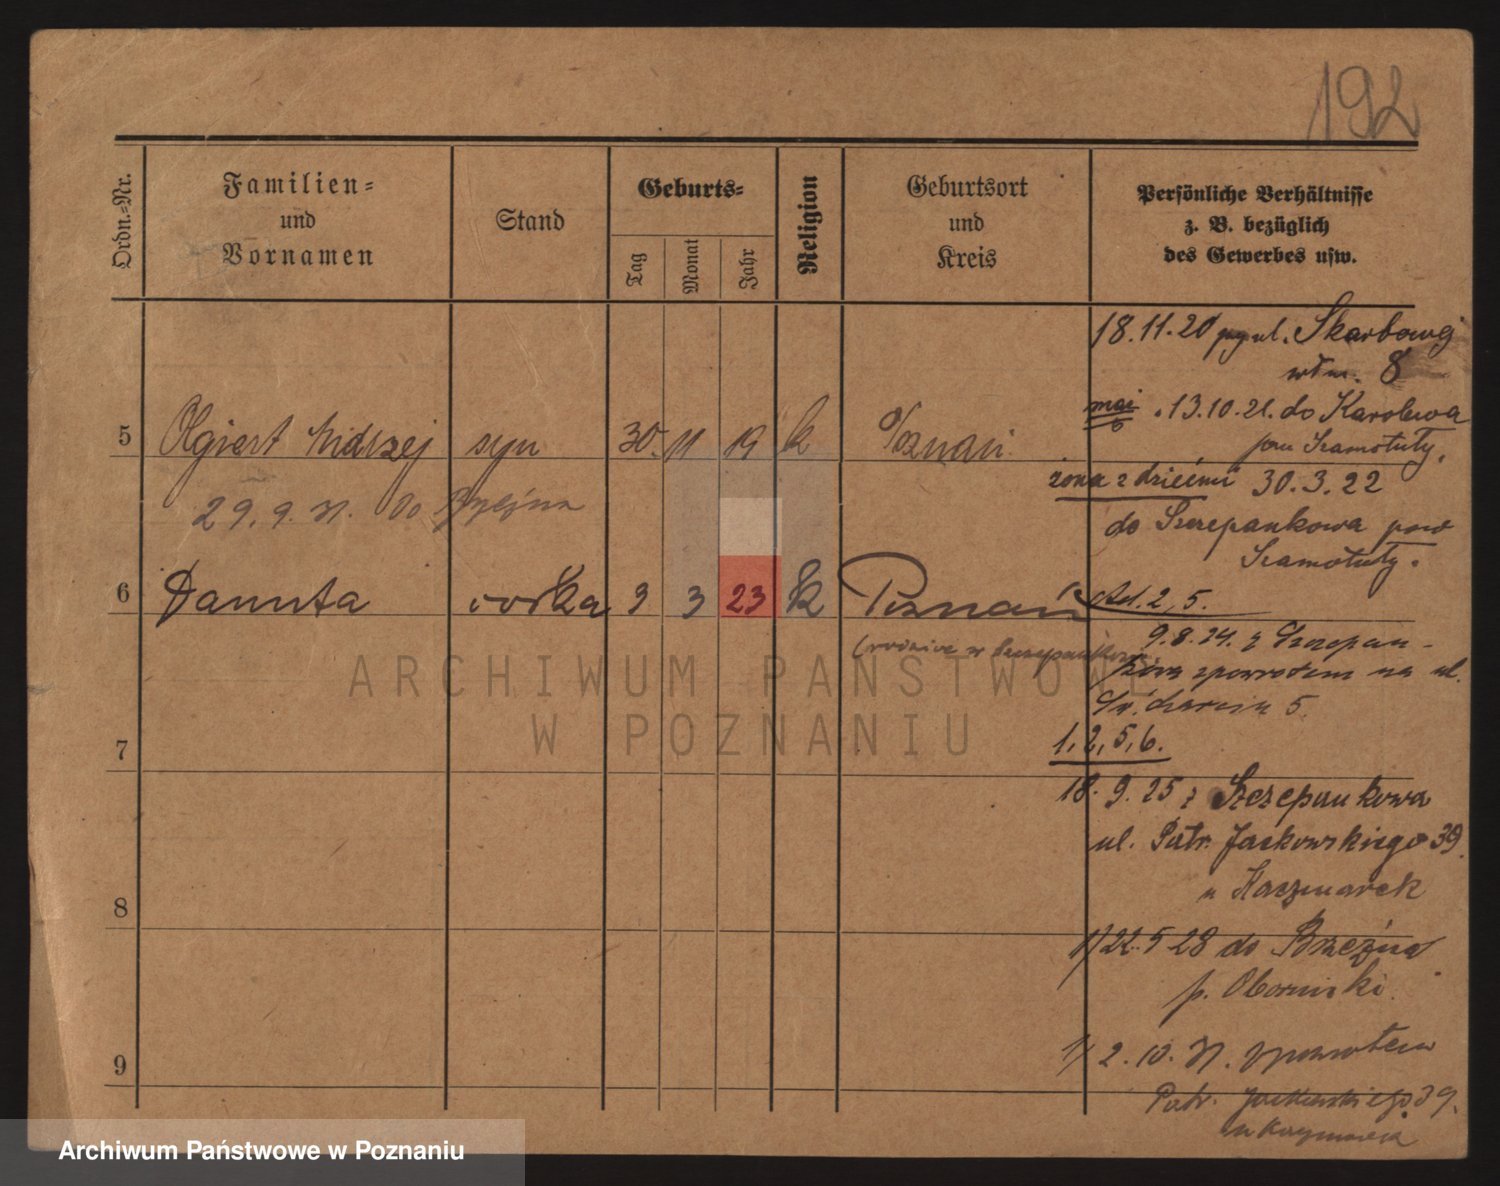 192
Ordn.-Nr.
Familien-
und
Vornamen
Stand
Geburts-
Tag
Monat
Jahr
Religion
Geburtsort
und
Kreis
Persönliche Verhältnisse
z. B. bezüglich
des Gewerbes usw.
18.11.20 ul. Skarbowej
8
mąż 13.10.21. do Karolewa
pow Szamotuły.
5 Olgiert Andrzej syn 30. 11 19 k Poznań.
żona z dziećmi 30.3.22
29. 9. do
do Szczepankowa pow
Szamotuły.
6 Danuta córka 9 3 23 k Poznań
Ad. 2, 5.
(rodzice w Szczepankowie
9.8.24. z Szczepan-
kowa zpowrotem na ul.
Św. Marcin 5.
1, 2, 5, 6.
7
18. 9. 25 z Szczepankowa
ul. Patr. Jackowskiego 39.
u Kaczmarek
8
1) 22. 5 28 do Brzeźna
p. Obornicki.
1) 2. 10. zpowrotem
9
Patr. Jackowskiego 39.
u Kaczmarek
ARCHIWUM PAŃSTWOWE
W POZNANIU
Archiwum Państwowe w Poznaniu